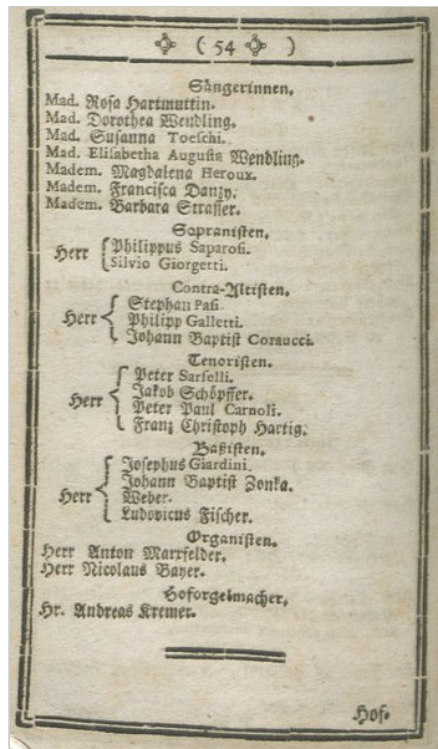 ( 54 )
Sängerinnen.
Mad. Rosa Hartmuttin.
Mad. Dorothea Wendling.
Mad. Susanna Toeschi.
Mad. Elisabetha Augusta Wendling.
Madem. Magdalena Heroux.
Madem. Francisca Danzy.
Madem. Barbara Strasser.
Sopranisten.
Herr { Philippus Saparosi.
Silvio Giorgetti.
Contra-Altisten.
Stephan Pasi
Herr { Philipp Galletti.
Johann Baptist Coraucci.
Tenoristen.
Peter Sarselli.
Herr { Jakob Schöpffer.
Peter Paul Carnoli.
Franz Christoph Hartig.
Baßisten.
Josephus Giardini.
Herr { Johann Baptist Zonka.
Weber.
Ludovicus Fischer.
Organisten.
Herr Anton Marxfelder.
Herr Nicolaus Bayer.
Hoforgelmacher.
Hr. Andreas Kremer.
Hof-